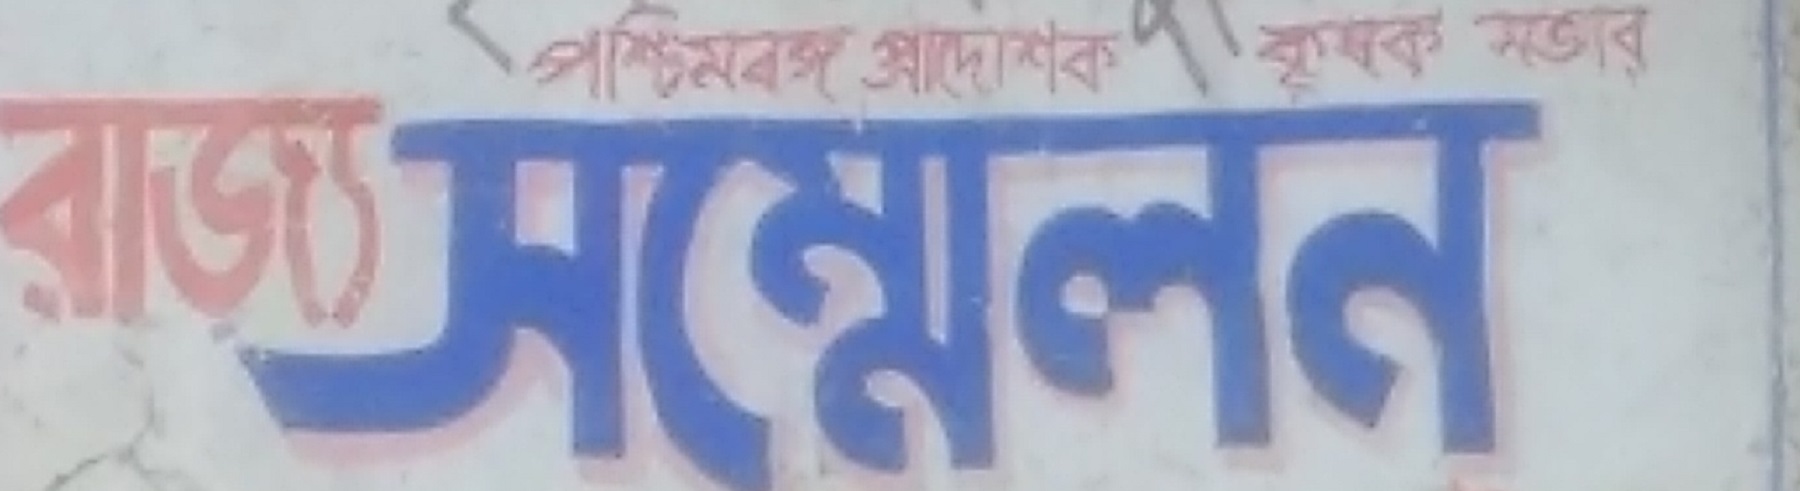 পশ্চিমবঙ্গ প্রাদেশিক কৃষক সভার
রাজ্য সম্মেলন